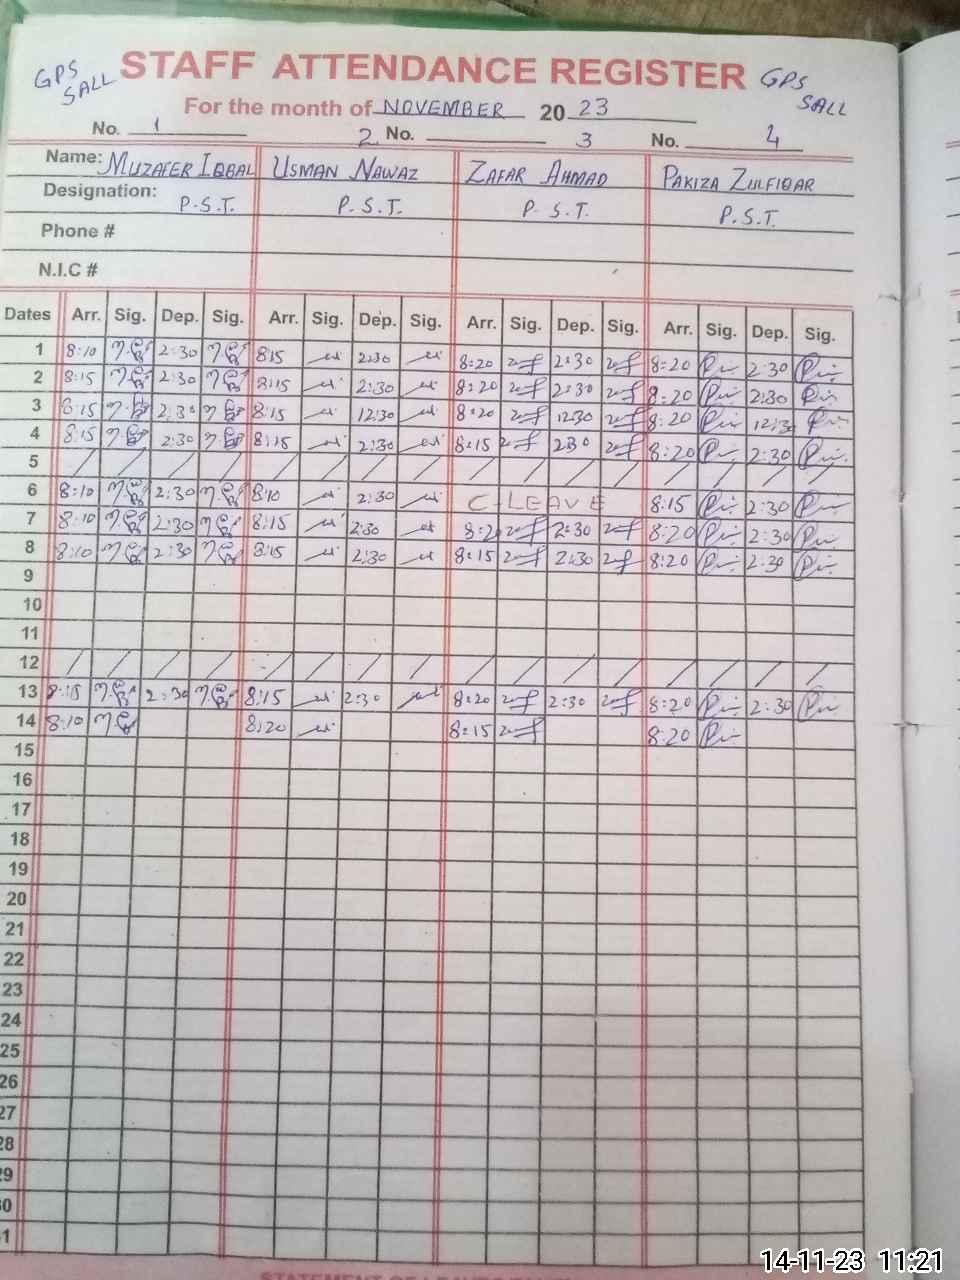 GPS SALL STAFF ATTENDANCE REGISTER GPS SALL
For the month of NOVEMBER 20 23
No. 1 2 No. 3 No. 4
Name: MUZAFER IQBAL USMAN NAWAZ ZAFAR AHMAD PAKIZA ZULFIQAR
Designation: P.S.T. P.S.T. P.S.T. P.S.T.
Phone #
N.I.C #
Dates Arr. Sig. Dep. Sig. Arr. Sig. Dep. Sig. Arr. Sig. Dep. Sig. Arr. Sig. Dep. Sig.
1 8:10 2:30 8:15 2:30 8:20 2:30 8:20 2:30
2 8:15 2:30 8:15 2:30 8:20 2:30 8:20 2:30
3 8:15 2:30 8:15 12:30 8:20 12:30 8:20 12:30
4 8:15 2:30 8:15 2:30 8:15 2:30 8:20 2:30
5
6 8:10 2:30 8:10 2:30 C-LEAVE 8:15 2:30
7 8:10 2:30 8:15 2:30 8:20 2:30 8:20 2:30
8 8:10 2:30 8:15 2:30 8:15 2:30 8:20 2:30
9
10
11
12
13 8:15 2:30 8:15 2:30 8:20 2:30 8:20 2:30
14 8:10 8:20 8:15 8:20
15
16
17
18
19
20
21
22
23
24
25
26
27
28
29
30
31
14-11-23 11:21